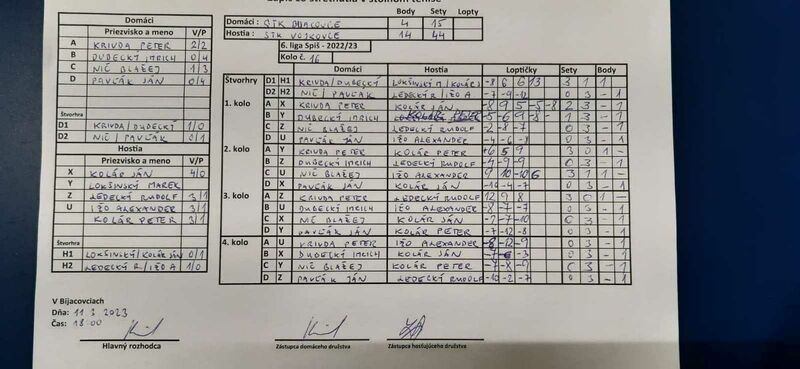 Zápis zo stretnutia v stolnom tenise
Domáci
Priezvisko a meno V/P
A KRIVDA PETER 2/2
B DUDECKÝ IMRICH 0/4
C NIČ BLAŽEJ 1/3
D PAVČÁK JÁN 0/4
Štvorhra
D1 KRIVDA/DUDECKÝ 1/0
D2 NIČ/PAVČÁK 0/1
Hostia
Priezvisko a meno V/P
X KOLÁR JÁN 4/0
Y LOKŠINSKÝ MAREK
Z LEDECKÝ RUDOLF 3/1
U IŽO ALEXANDER 3/1
KOLÁR PETER 3/1
Štvorhra
H1 LOKŠINSKÝ/KOLÁR JÁN 0/1
H2 LEDECKÝ R/IŽO A 1/0
Body Sety Lopty
Domáci : STK BIJACOVCE 4 15
Hostia : STK VOJKOVCE 14 44
6. liga Spiš - 2022/23
Kolo č. 16
Domáci Hostia Loptičky Sety Body
Štvorhry D1 H1 KRIVDA/DUDECKÝ LOKŠINSKÝ M/KOLÁR J 3 1 1
D2 H2 NIČ/PAVČÁK LEDECKÝ R/IŽO A -7 -9 -12 0 3 - 1
1. kolo A X KRIVDA PETER KOLÁR JÁN -8 9 5 -5 -8 2 3 - 1
B Y DUDECKÝ IMRICH 1 3 - 1
C Z NIČ BLAŽEJ LEDECKÝ RUDOLF -2 -8 -7 0 3 - 1
D U PAVČÁK JÁN IŽO ALEXANDER -4 -6 -8 0 3 - 1
2. kolo A Y KRIVDA PETER KOLÁR PETER 6 5 9 3 0 1 -
B Z DUDECKÝ IMRICH LEDECKÝ RUDOLF -4 -9 -9 0 3 - 1
C U NIČ BLAŽEJ IŽO ALEXANDER 9 10 -10 6 3 1 1 -
D X PAVČÁK JÁN KOLÁR JÁN -4 -7 0 3 - 1
3. kolo A Z KRIVDA PETER LEDECKÝ RUDOLF 12 9 8 3 0 1 -
B U DUDECKÝ IMRICH IŽO ALEXANDER -8 -7 -7 0 3 - 1
C X NIČ BLAŽEJ KOLÁR JÁN -7 -10 0 3 - 1
D Y PAVČÁK JÁN KOLÁR PETER -7 -12 -7 0 3 - 1
4. kolo A U KRIVDA PETER IŽO ALEXANDER -8 -12 -9 0 3 - 1
B X DUDECKÝ IMRICH KOLÁR JÁN -7 -3 0 3 - 1
C Y NIČ BLAŽEJ KOLÁR PETER -7 -8 -9 0 3 - 1
D Z PAVČÁK JÁN LEDECKÝ RUDOLF -10 -2 -7 0 3 - 1
V Bijacovciach
Dňa: 11.3.2023
Čas: 18:00
Hlavný rozhodca
Zástupca domáceho družstva
Zástupca hosťujúceho družstva